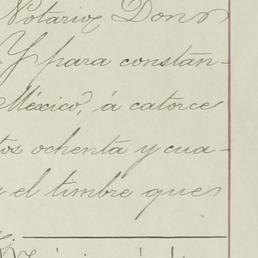 Notario, Don
Y para constan-
México, á catorce
tos ochenta y cua-
y el timbre que